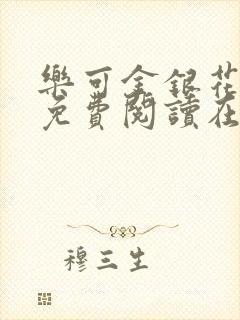 樂可金銀花
免費閱讀在
穆三生